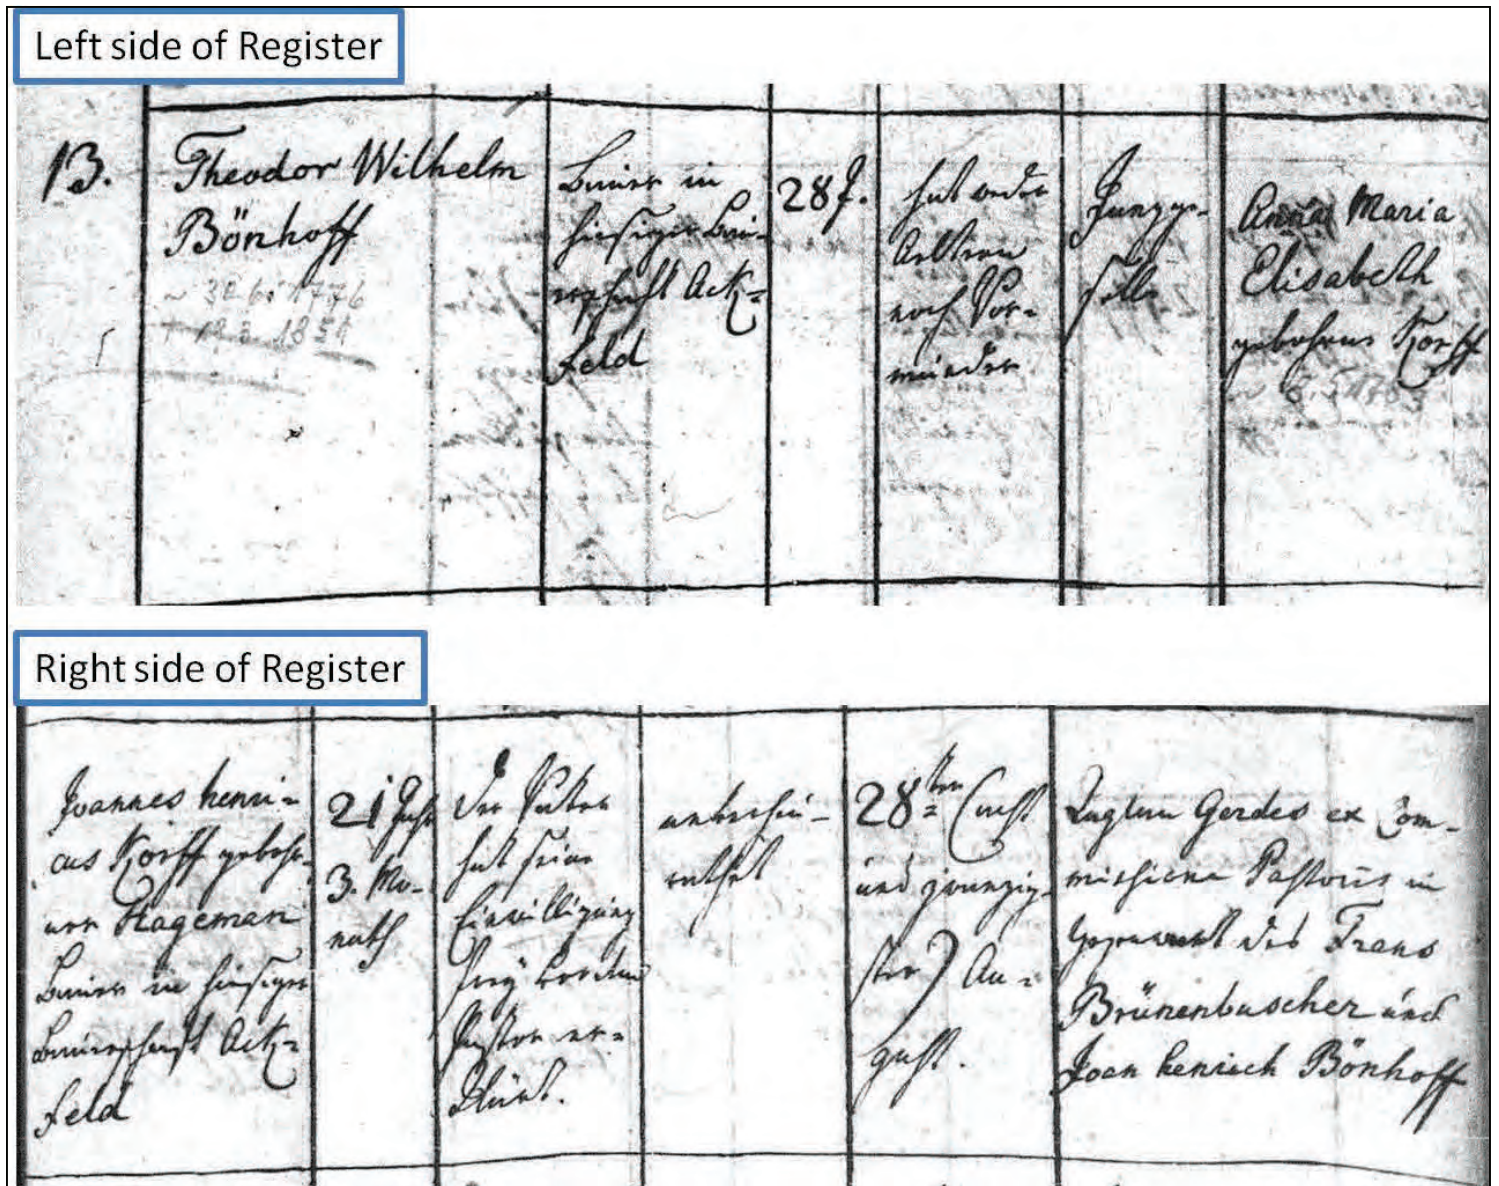 Left side of Register
13.
Theodor Wilhelm
Bönhoff
Bauer in
hiesiger Bau-
erschaft Ack-
feld
28 J.
hat weder
Aeltern
noch Vor-
münder
Jungge-
sell
Anna Maria
Elisabeth
gebohrne Korff
Right side of Register
Joannes henri-
cus Korff gebohr-
ner Hageman
Bauer in hiesiger
Bauerschaft Ack-
feld
21 Jahr
3. Mo-
nath
der Vater
hat seine
Einwilligung
Pastor er-
klärt.
unverhei-
rathet
28ten (acht
und zwanzig-
sten) Au-
gust.
Gerdes ex Com-
missione Pastoris in
Gegenwart des Frans
Brünenbuscher und
Joan henrich Bönhoff